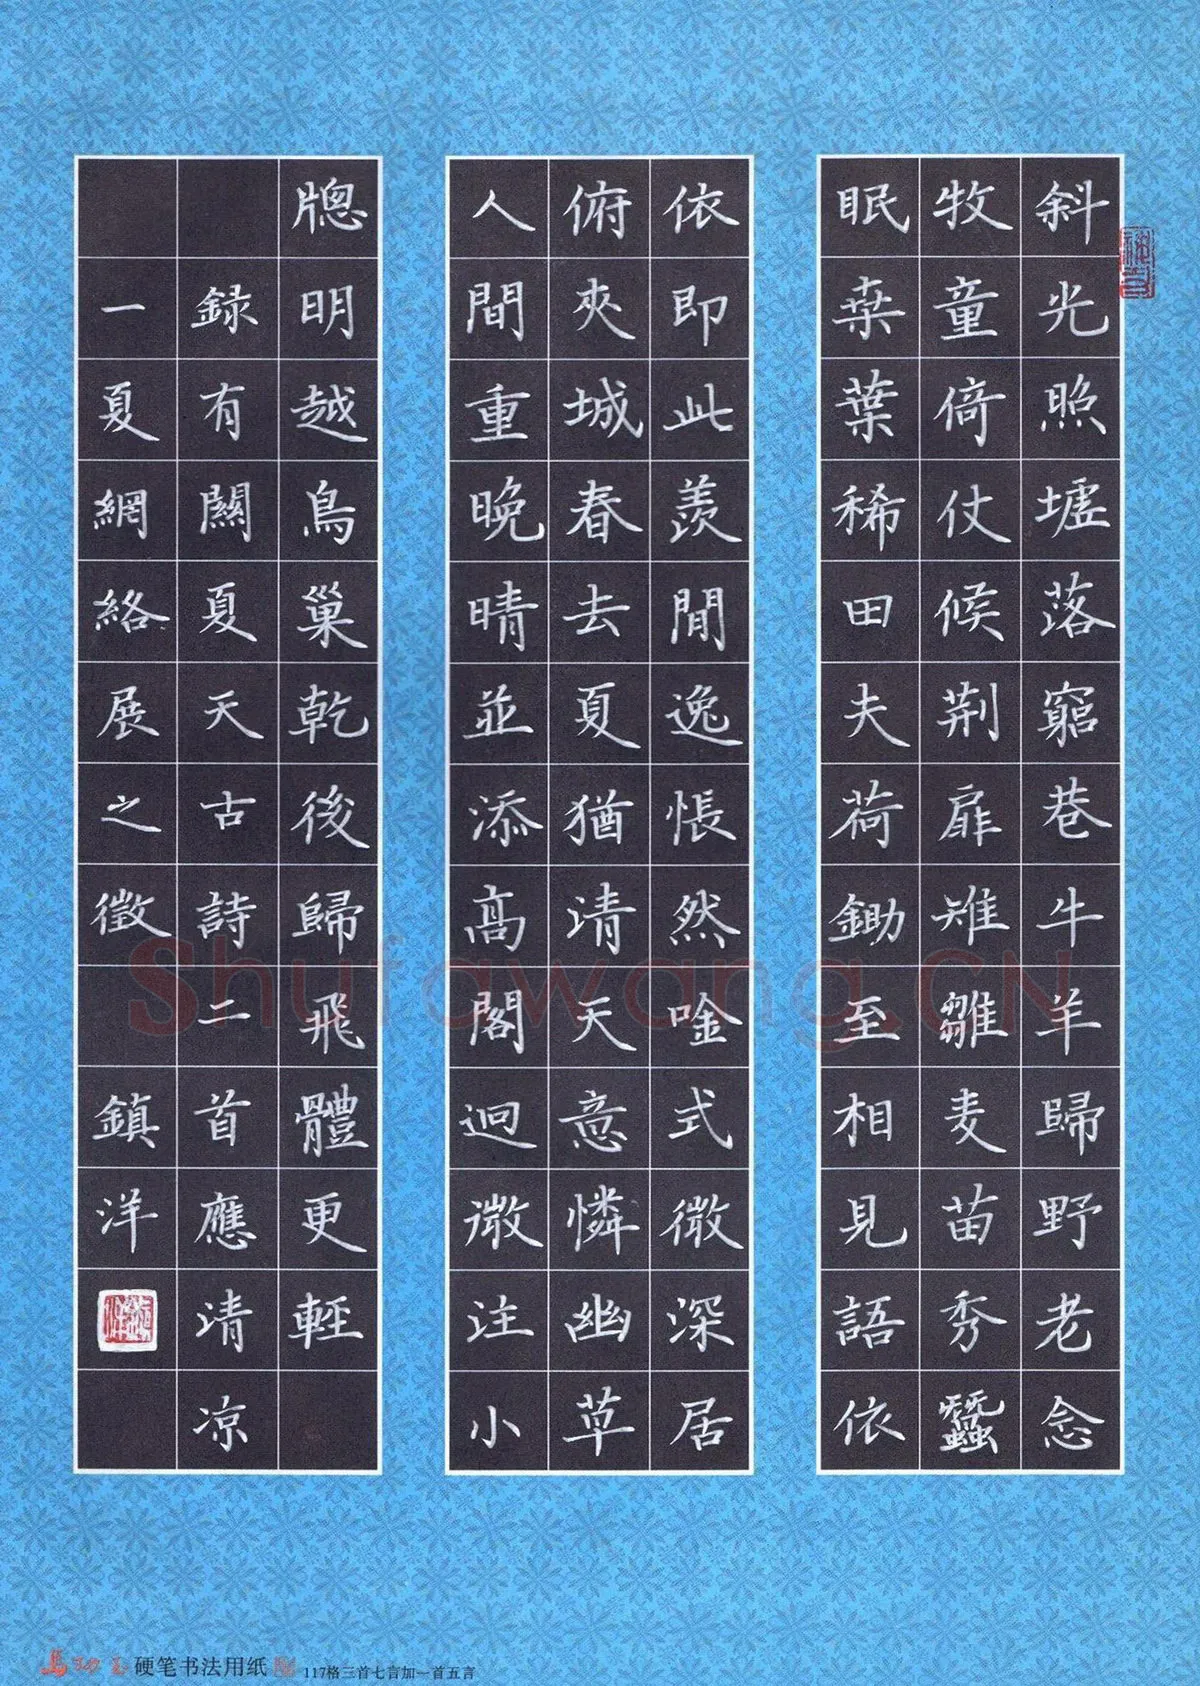 斜光照墟落窮巷牛羊歸野老念
牧童倚仗候荆扉雉雛麦苗秀蠶
眠桒葉稀田夫荷鋤至相見語依
依即此羨閒逸悵然唫式微深居
俯夾城春去夏猶清天意憐幽草
人間重晚晴並添高閣迥微注小
牕明越鳥巢乾後歸飛體更輕
録有關夏天古詩二首應清凉
一夏網絡展之徵 鎮洋
Shufawang.CN
硬笔书法用纸
117格三首七言加一首五言